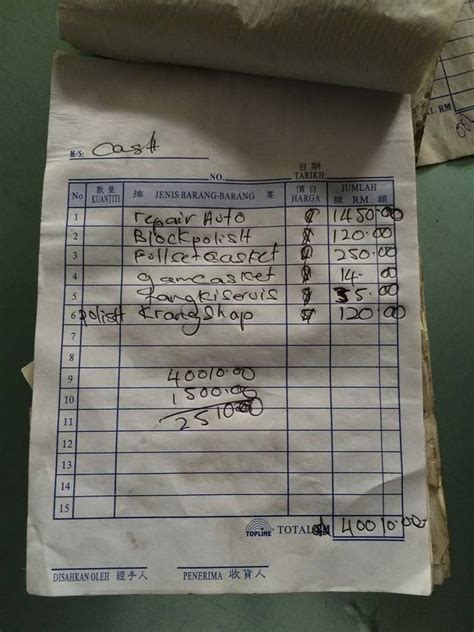 AL RM
M/S: Cash
NO.
日期
TARIKH:
No 數量 KUANTITI 摘 JENIS BARANG-BARANG 要 價目 HARGA JUMLAH 銀 RM 額
1 repair Auto $ 1450.00
2 Blockpolish $ 120.00
3 Fullsetgasket $ 250.00
4 gamgasket $ 14.00
5 Tangkiservis $ 35.00
6 polish Krangshap $ 120.00
7
8
9 40010.00
10 1500.00
11 251000
12
13
14
15
TOPLINE TOTAL RM $ 40010.00
DISAHKAN OLEH 經手人 PENERIMA 收貨人